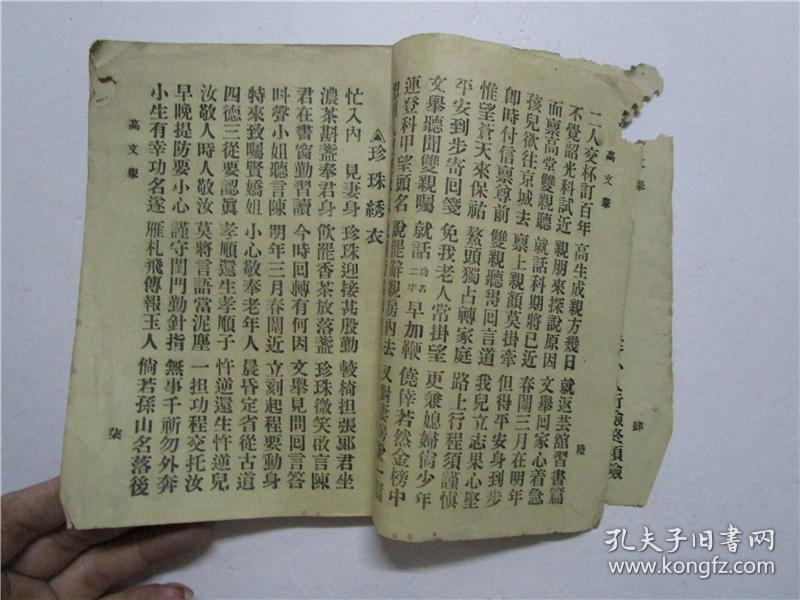 二人交杯訂百年 高生成親方幾日 就返芸館習書篇
不覺韶光科試近 親朋來探說原因 文舉回家心着急
面禀高堂雙親聽 就話科期將已近 春闈三月在明年
孩兒欲往京城去 禀上親顏莫掛牽 但得平安身到步
卽時付信禀尊前 雙親聽罷回言道 我兒立志果心堅
惟望蒼天來保祐 鰲頭獨占轉家庭 路上行程須謹慎
平安到步寄回箋 免我老人常掛望 更兼媳婦尙少年
文舉聽聞雙親囑 就話功名二字早加鞭 僥倖若然金榜中
連登科甲望頭名 說罷辭親房內去
高文舉
陸
肆
珍珠綉衣
忙入內 見妻身 珍珠迎接甚殷勤 較椅担張郞君坐
濃茶斟盞奉君身 飲罷香茶放落盞 珍珠微笑啟言陳
君在書窗勤習讀 今時回轉有何因 文舉見問回言答
呌聲小姐聽言陳 明年三月春闈近 立刻起程要動身
特來致囑賢嬌姐 小心敬奉老年人 晨昏定省從古道
四德三從要認眞 孝順還生孝順子 忤逆還生忤逆兒
汝敬人時人敬汝 莫將言語當泥塵 一担功程交托汝
早晚提防要小心 謹守閨門勤針指 無事千祈勿外奔
小生有幸功名遂 雁札飛傳報玉人 倘若孫山名落後
高文舉
柒
孔夫子旧书网
www.kongfz.com